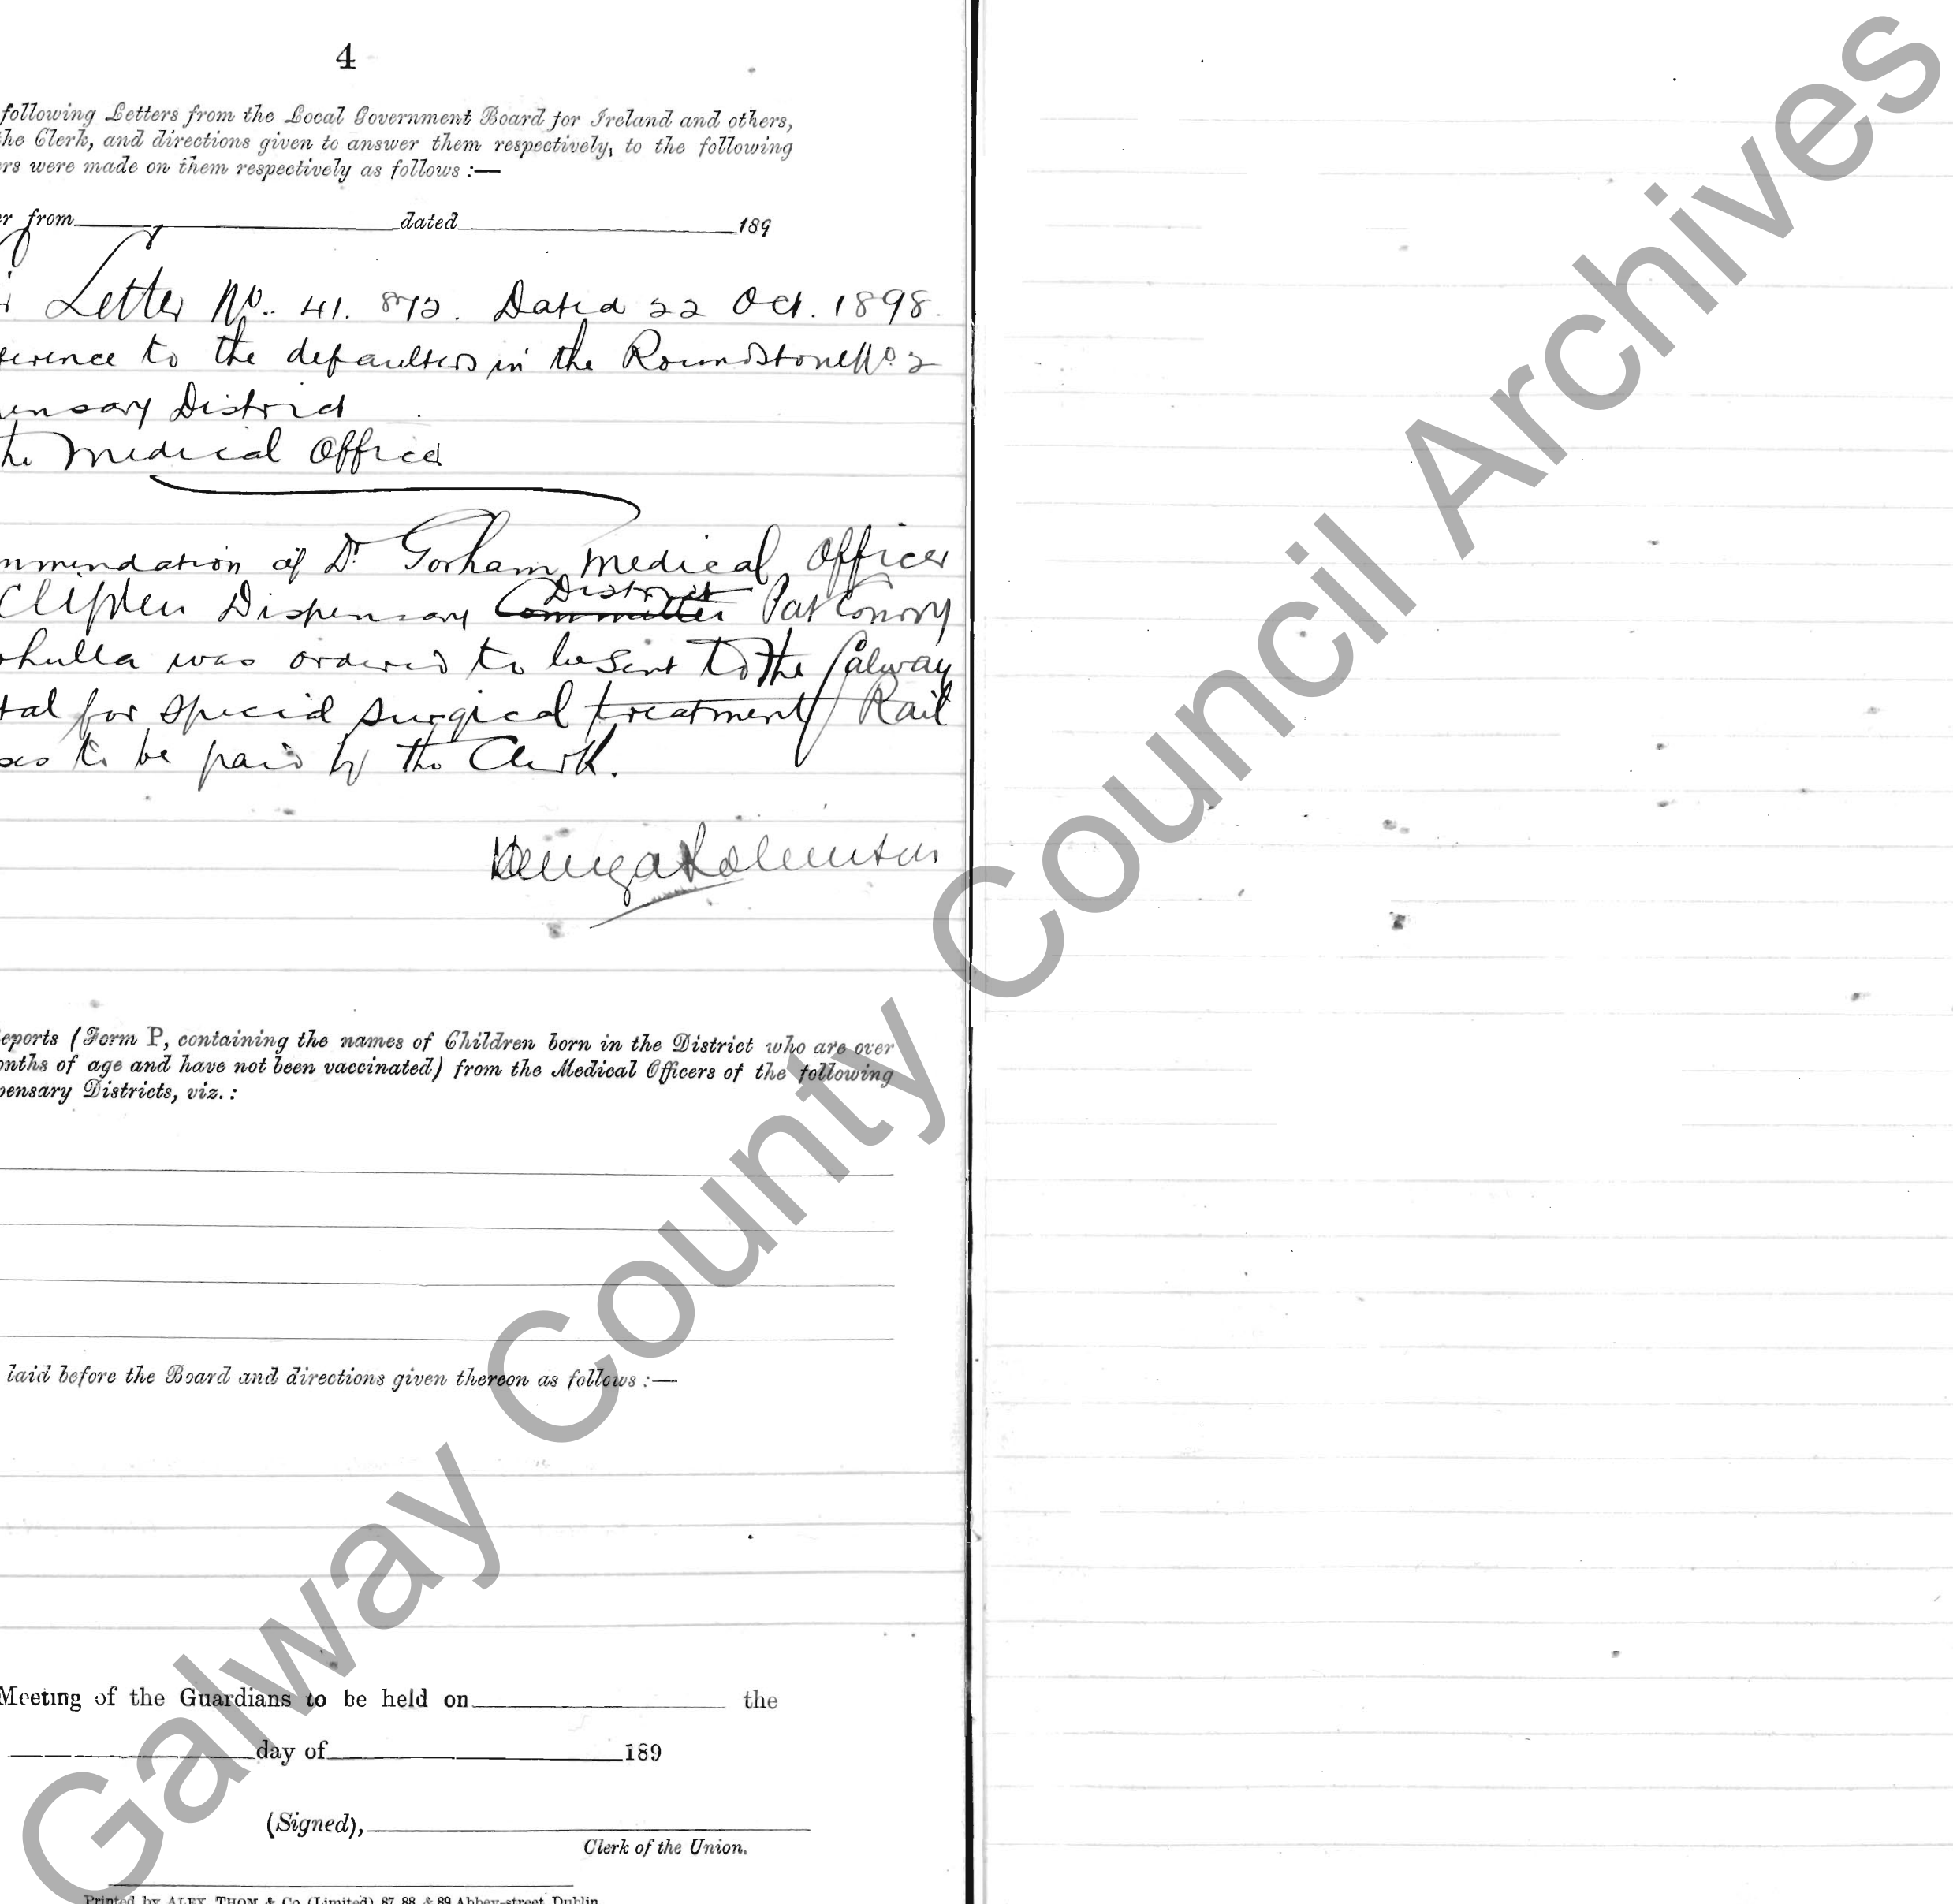 4
following Letters from the Local Government Board for Ireland and others,
he Clerk, and directions given to answer them respectively, to the following
rs were made on them respectively as follows :—
r from dated 189
Letter No. 41. 872. Dated 22 Oct. 1898.
erence to the defaulters in the Roundstone No 2
ensary District
the Medical Officer
mmendation of Dr Gorham Medical Officer
District
Clifden Dispensary Committee Pat Conroy
hulla was ordered to be sent to the Galway
tal for special surgical treatment Rail
ses to be paid by the Clerk.
eports (Form P, containing the names of Children born in the District who are over
onths of age and have not been vaccinated) from the Medical Officers of the following
pensary Districts, viz. :
laid before the Board and directions given thereon as follows :—
Meeting of the Guardians to be held on the
day of 189
(Signed),
Clerk of the Union.
Printed by ALEX. THOM & Co. (Limited) 87, 88, & 89 Abbey-street, Dublin
Galway County Council Archives